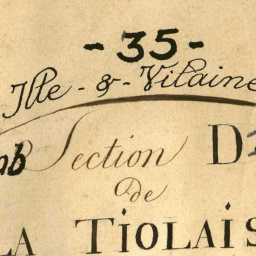 - 35 -
Ille - & - Vilaine
Section D
de
LA TIOLAIS